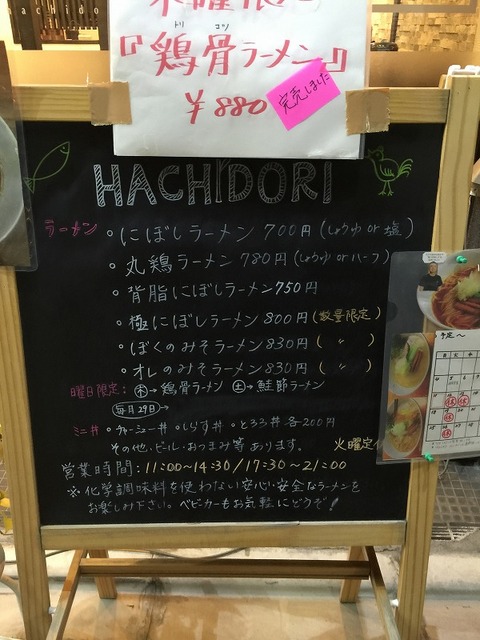 hachido
木曜限定
『鶏骨ラーメン』
トリ コツ
¥880
完売しました
HACHIDORI
ラーメン
・にぼしラーメン 700円 (しょうゆ or 塩)
・丸鶏ラーメン 780円 (しょうゆ or ハーフ)
・背脂にぼしラーメン 750円
・極にぼしラーメン 800円 (数量限定)
・ぼくのみそラーメン 830円 ( 〃 )
・オレのみそラーメン 830円 ( 〃 )
曜日限定: 木→鶏骨ラーメン 土→鮭節ラーメン
毎月29日→
ミニ丼 ・チャーシュー丼 ・しらす丼 ・とろろ丼 各200円
その他、ビール・おつまみ等 あります。 火曜定休
営業時間: 11:00〜14:30/17:30〜21:00
※化学調味料を使わない安心・安全なラーメンを
お楽しみ下さい。ベビーカーもお気軽にどうぞ!
予定〜